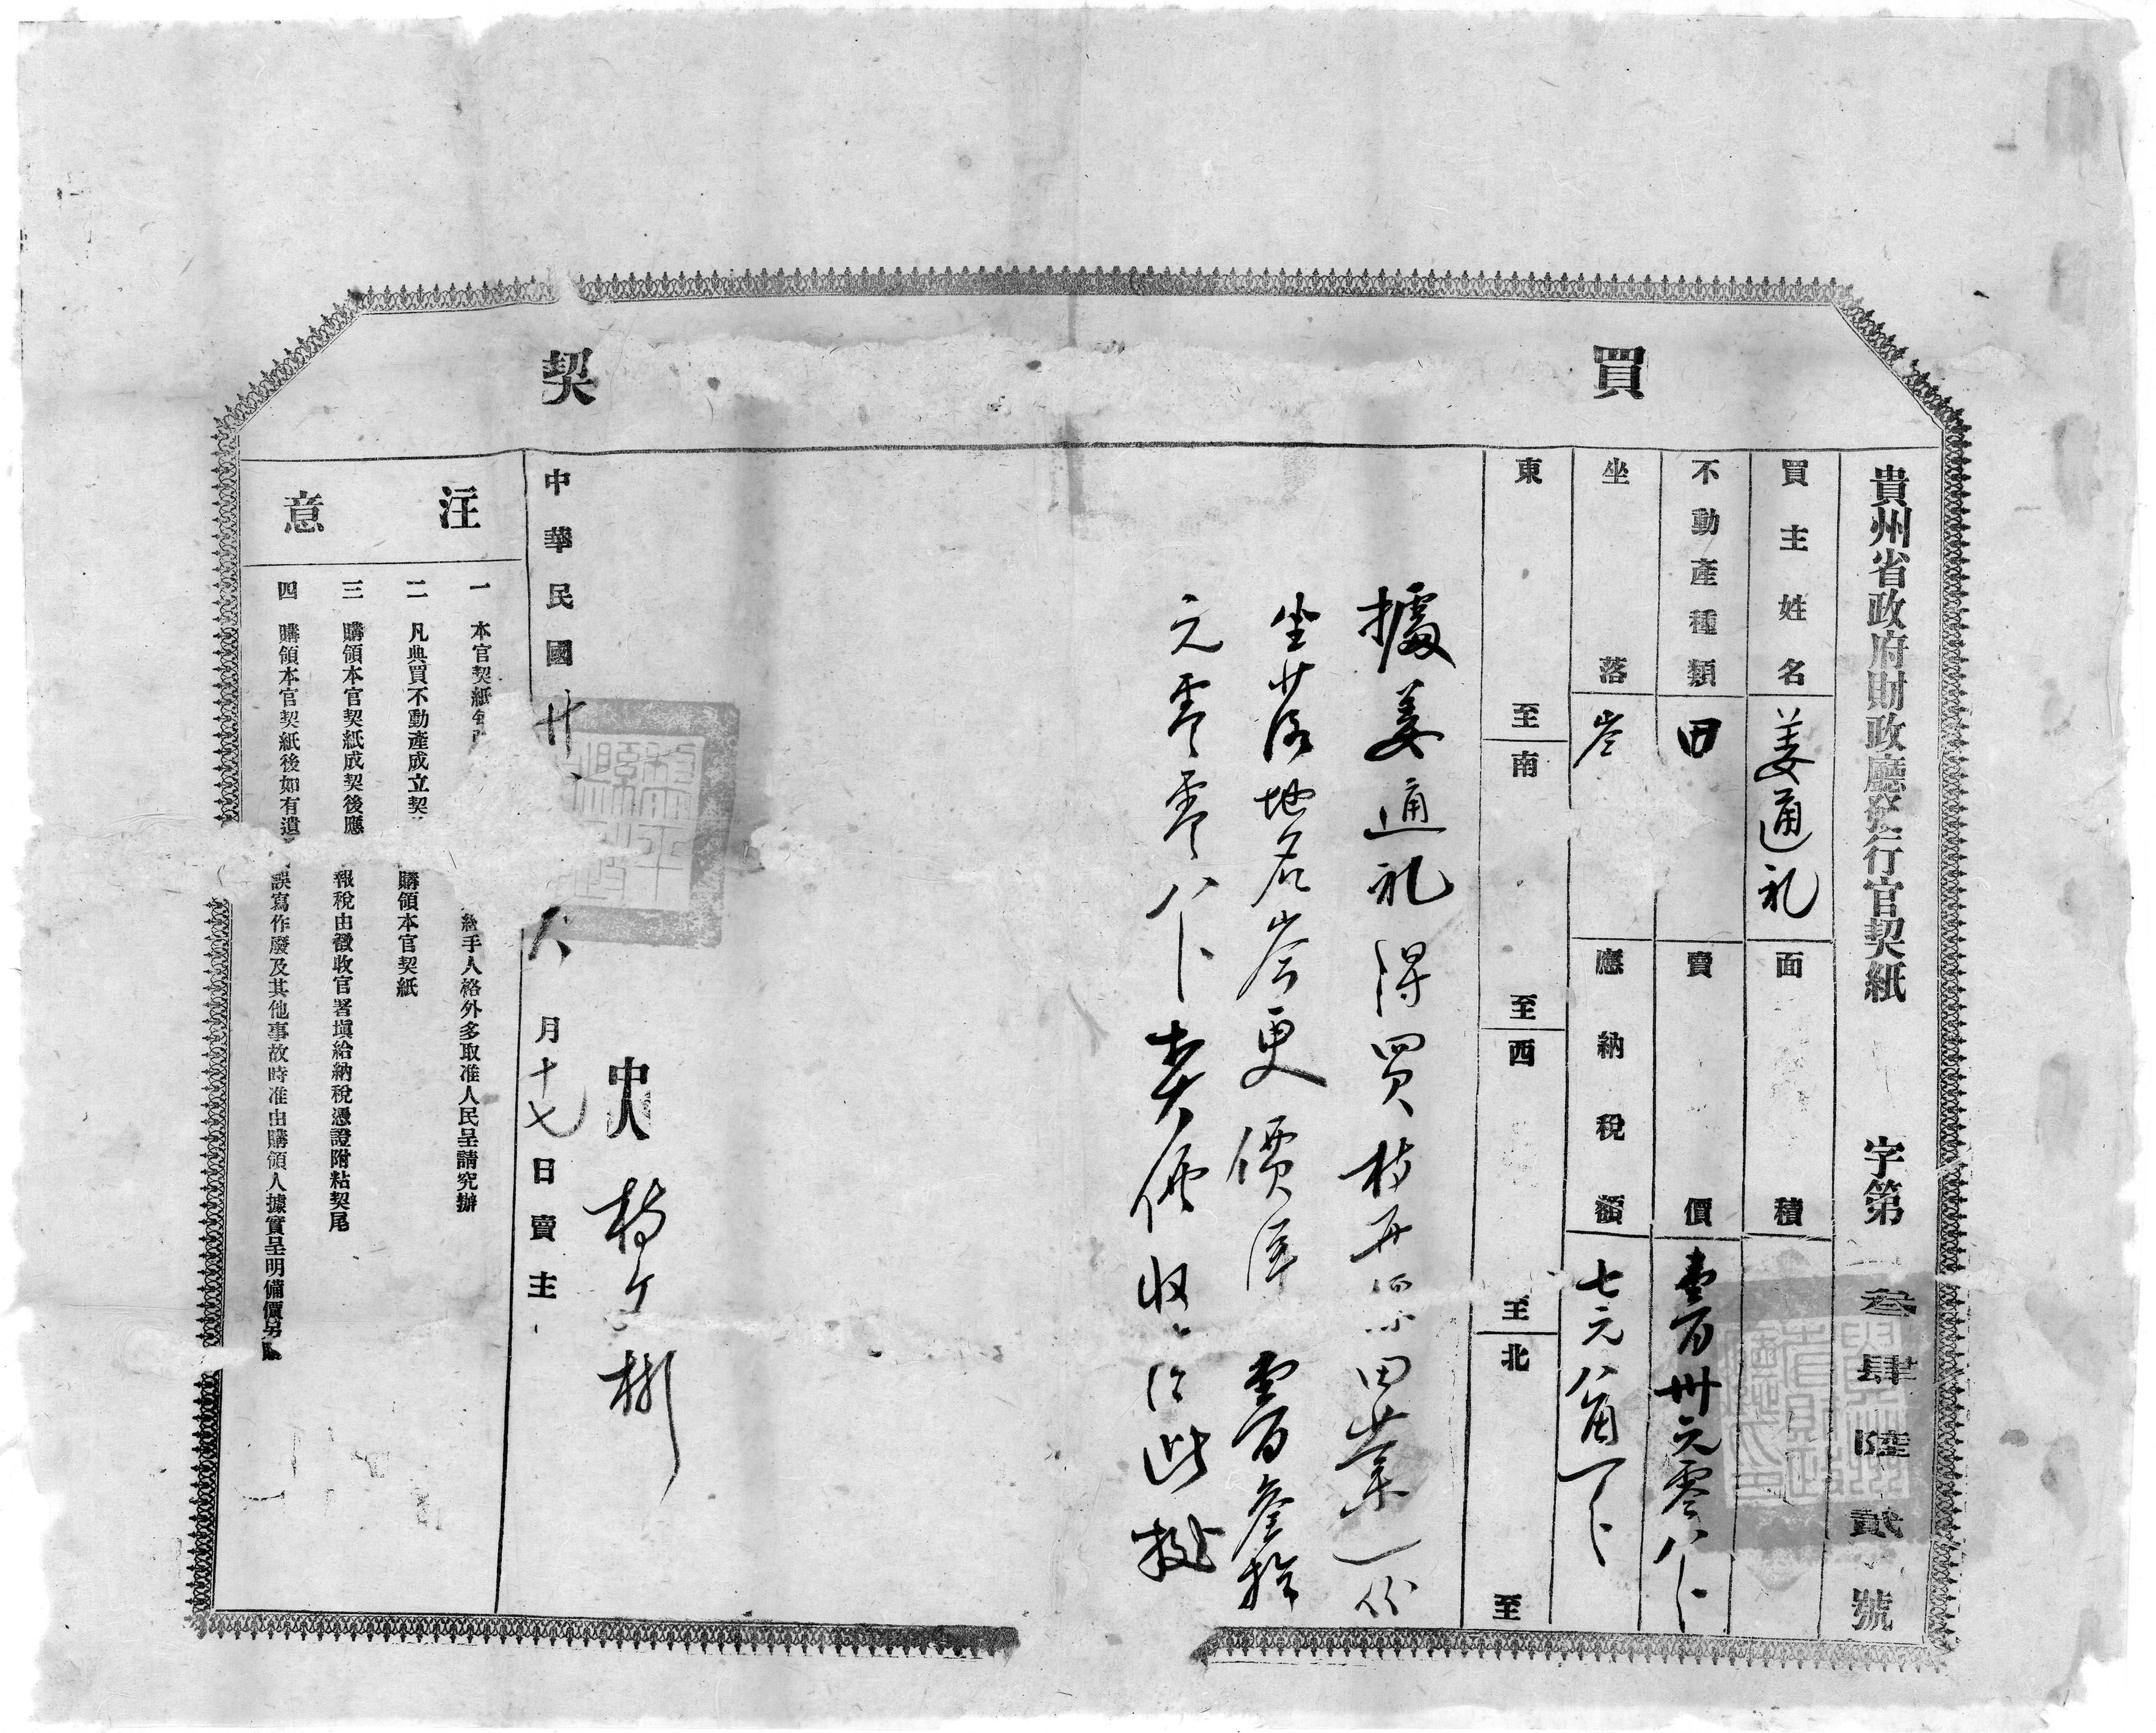 買契
貴州省政府財政廳發行官契紙 字第 叁肆陸貳號
買主姓名 姜通礼 面積
不動產種類 田 賣價 壹百卅元零八卜
坐落 岑 應納稅額 七元八角一卜
東至 南至 西至 北至
據姜通礼得買 田業一份
坐落地名岑更價洋壹百叁拾
元零零八卜 此據
中人
中華民國廿 八月十七日賣主
注意
一 本官契紙每 經手人格外多取准人民呈請究辦
二 凡典買不動產成立契 購領本官契紙
三 購領本官契紙成契後應 報稅由徵收官署塡給納稅憑證附粘契尾
四 購領本官契紙後如有遺 誤寫作廢及其他事故時准由購領人據實呈明備價另